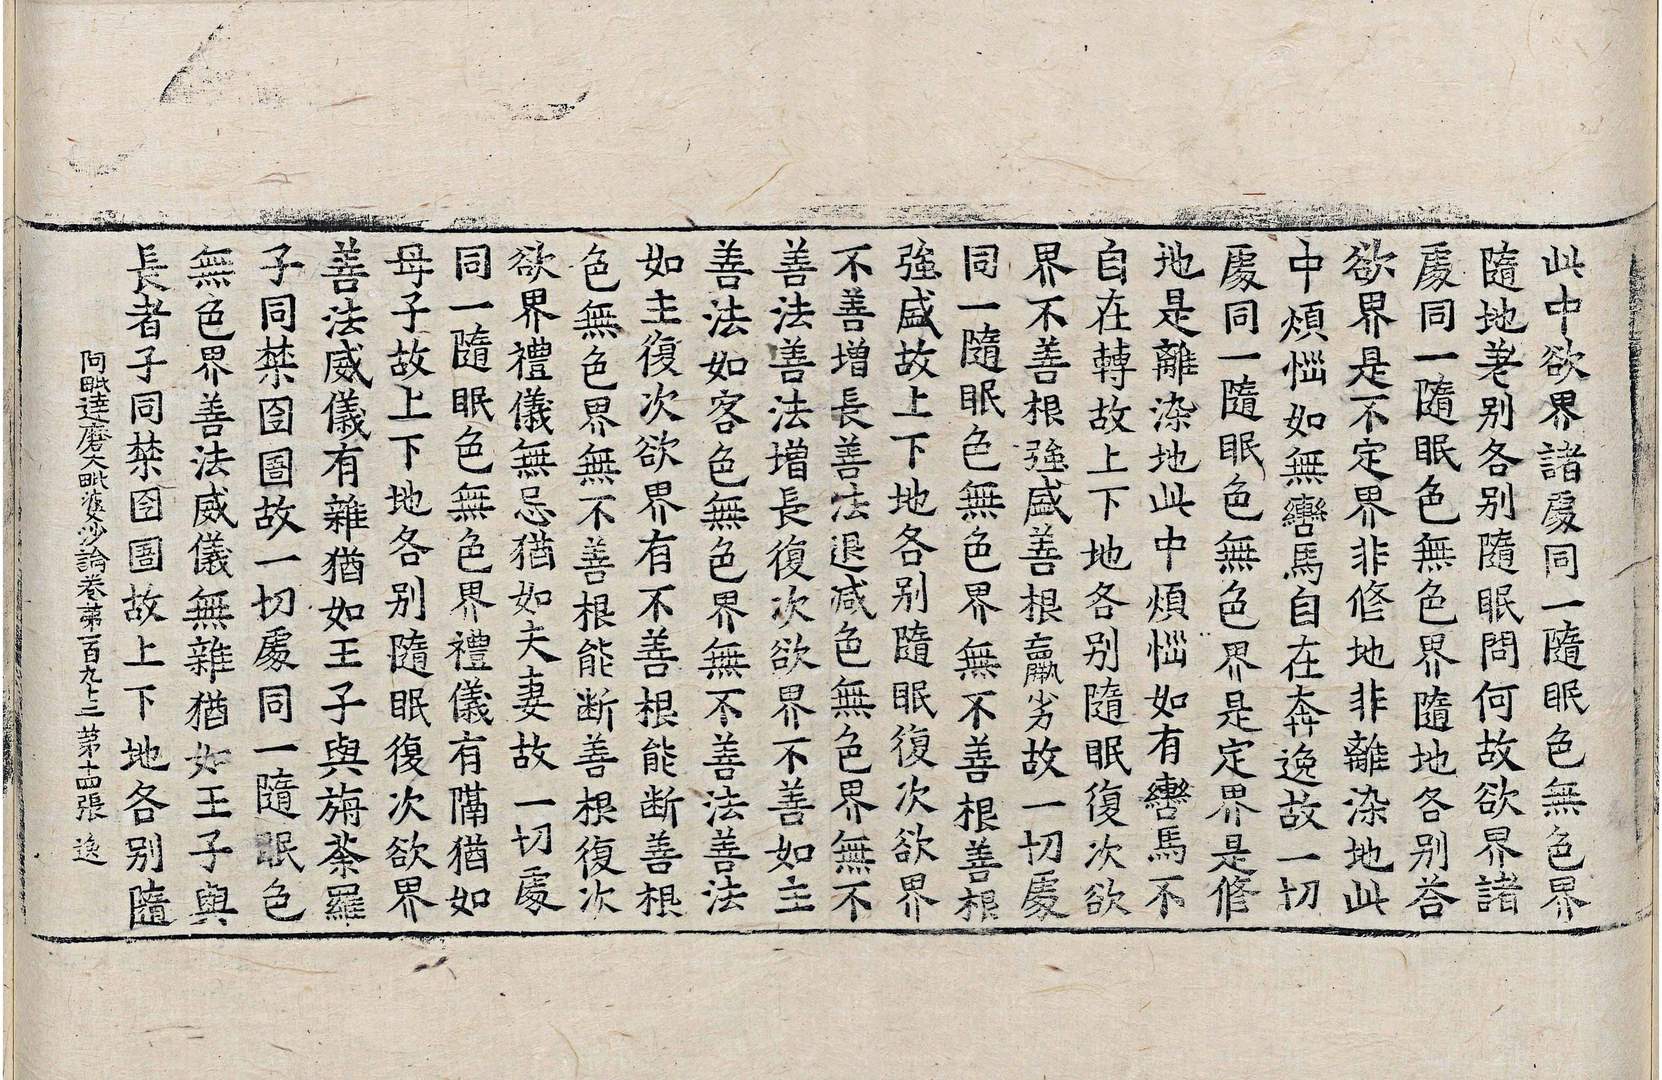 此中欲界諸處同一隨眠色無色界
隨地差别各别隨眠問何故欲界諸
處同一隨眠色無色界隨地各别荅
欲界是不定界非修地非離染地此
中煩惱如無轡馬自在奔逸故一切
處同一隨眠色無色界是定界是修
地是離染地此中煩惱如有轡馬不
自在轉故上下地各别隨眠復次欲
界不善根強盛善根羸劣故一切處
同一隨眠色無色界無不善根善根
強盛故上下地各别隨眠復次欲界
不善增長善法退減色無色界無不
善法善法增長復次欲界不善如主
善法如客色無色界無不善法善法
如主復次欲界有不善根能断善根
色無色界無不善根能断善根復次
欲界禮儀無忌猶如夫妻故一切處
同一隨眠色無色界禮儀有隔猶如
母子故上下地各别隨眠復次欲界
善法威儀有雜猶如王子與旃荼羅
子同禁囹圄故一切處同一隨眠色
無色界善法威儀無雜猶如王子與
長者子同禁囹圄故上下地各别隨
阿毗達磨大毗婆沙論卷第百九十二 第十四張 逸